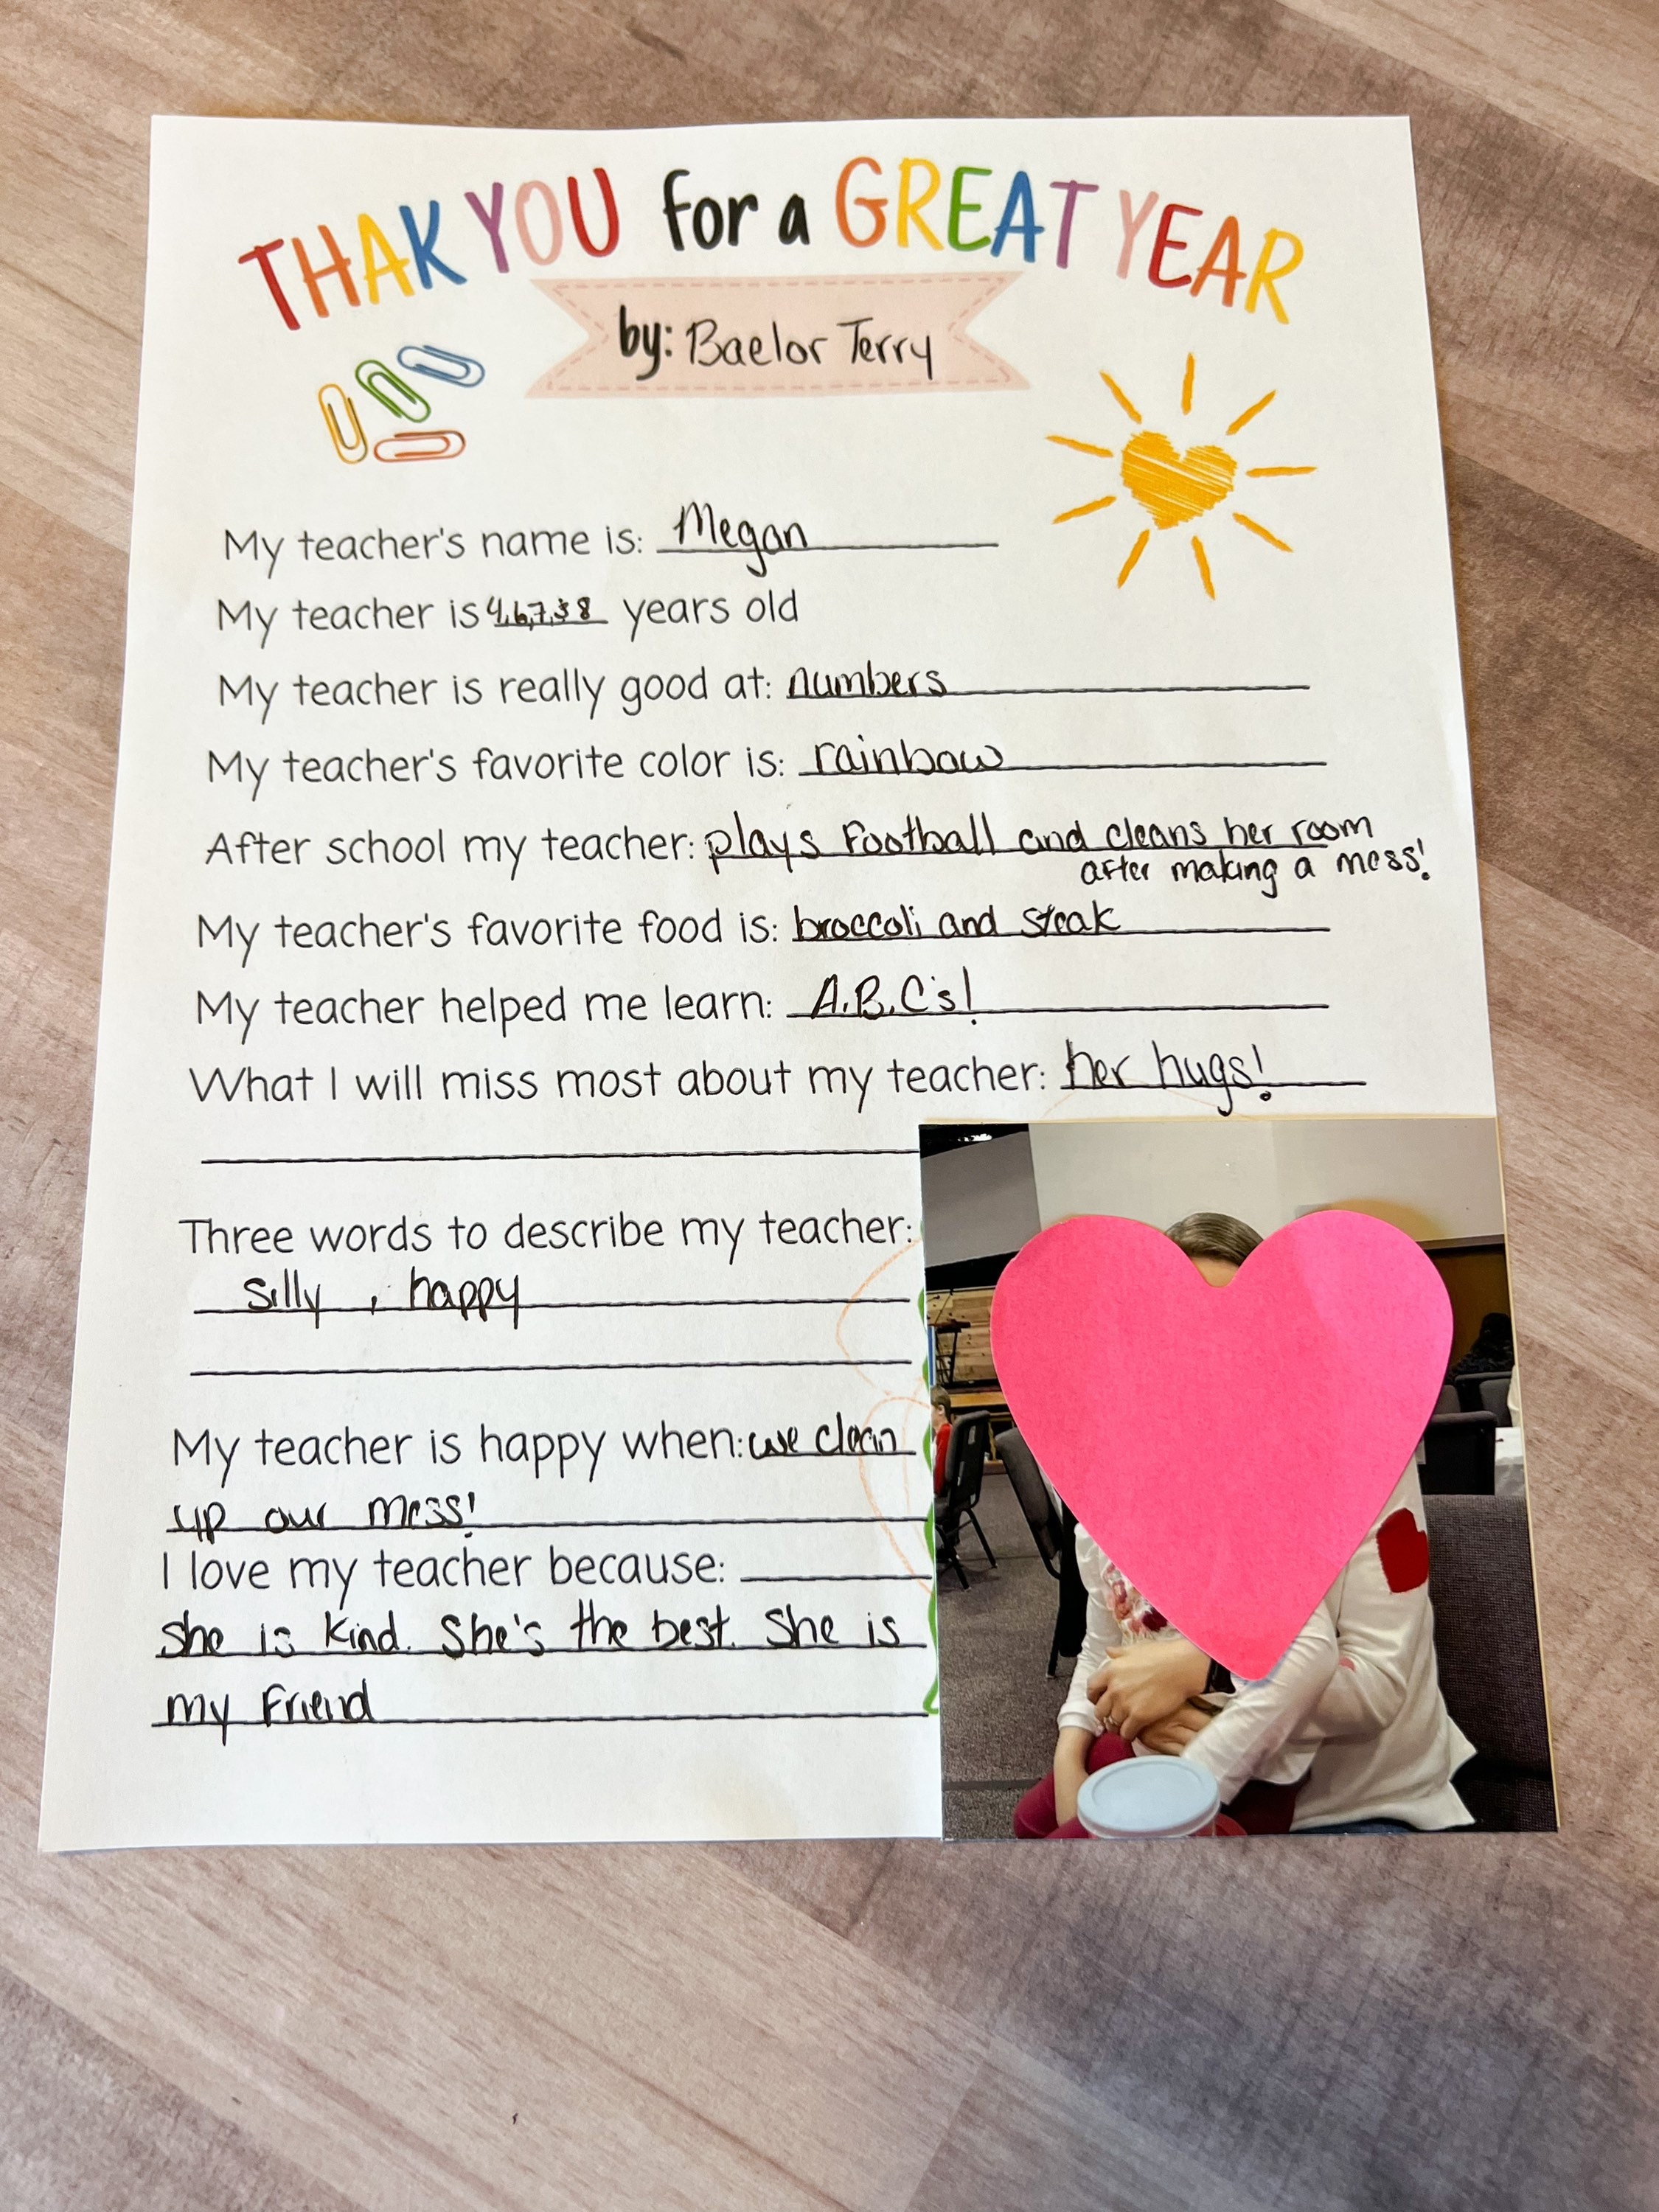 THAK YOU for a GREAT YEAR
by: Baelor Terry
My teacher's name is: Megan
My teacher is 4,6,7,38 years old
My teacher is really good at: numbers
My teacher's favorite color is: rainbow
After school my teacher: plays football and cleans her room
after making a mess!
My teacher's favorite food is: broccoli and steak
My teacher helped me learn: A.B.C's!
What I will miss most about my teacher: her hugs!
Three words to describe my teacher:
silly , happy
My teacher is happy when: we clean
up our mess!
I love my teacher because:
she is kind. She's the best. She is
my friend